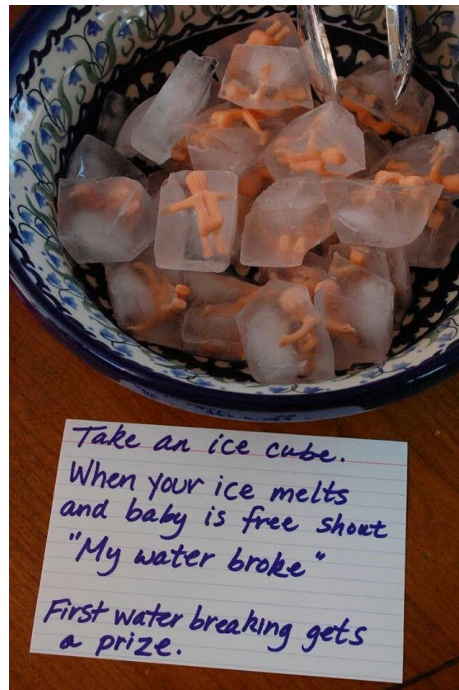 Take an ice cube.
When your ice melts
and baby is free shout
"My water broke"
First water breaking gets
a prize.